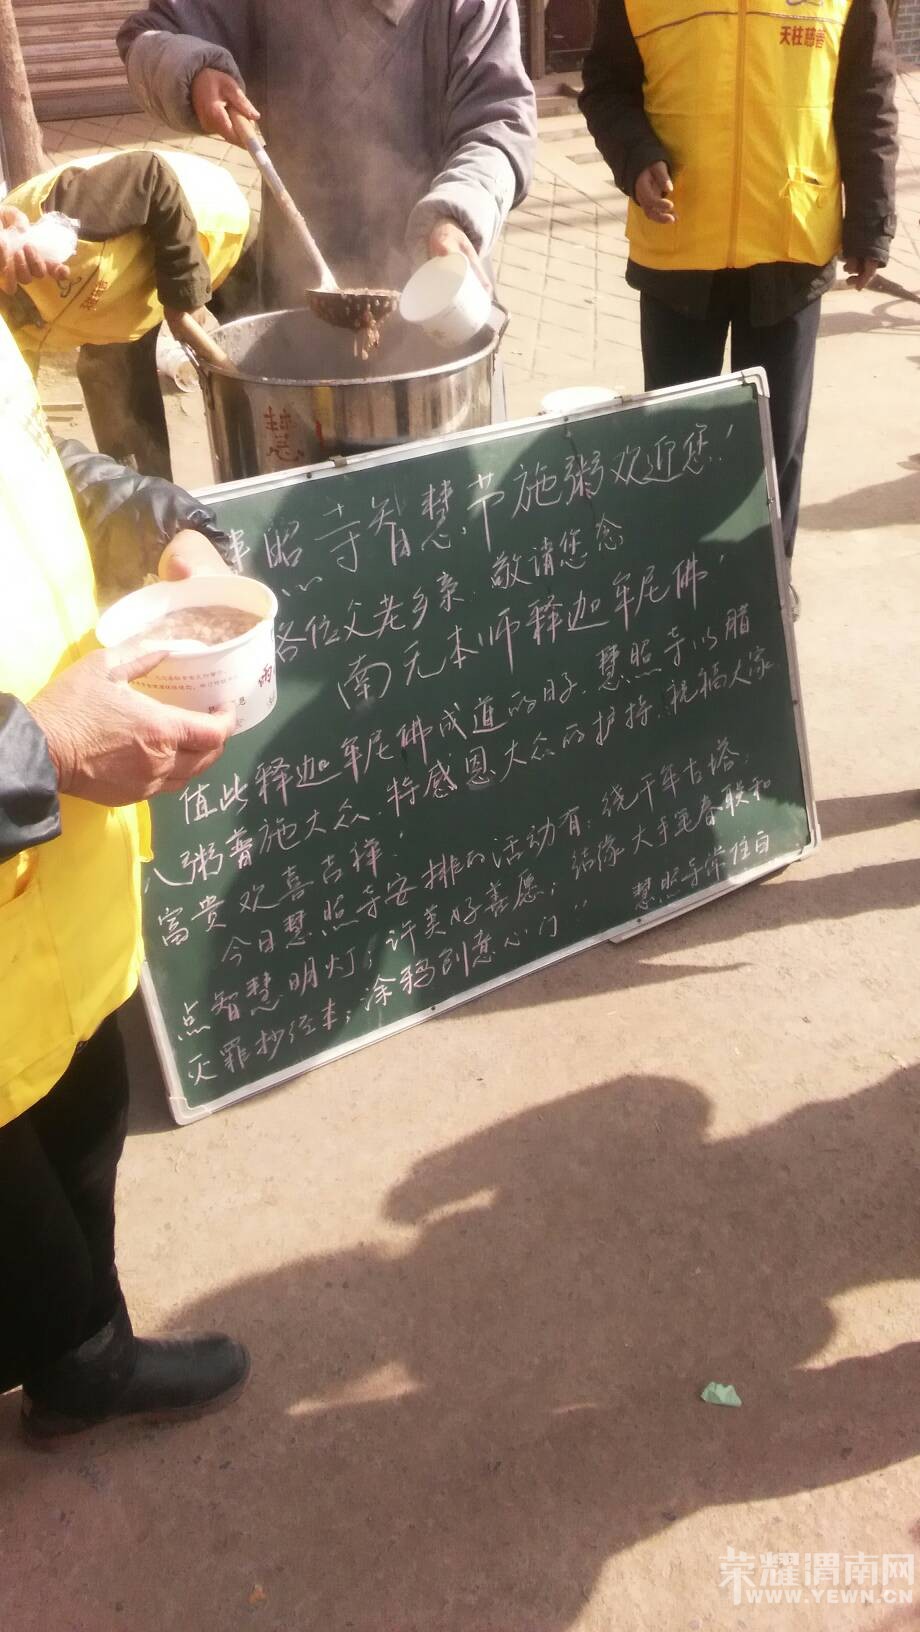 天柱慈善
慧
慧照寺智慧节施粥欢迎您!
各位父老乡亲.敬请您念
南无本师释迦牟尼佛!
值此释迦牟尼佛成道的日子.慧照寺以腊
八粥普施大众.特感恩大众的护持.祝福人家
富贵欢喜吉祥!
今日慧照寺安排的活动有:绕千年古塔;
点智慧明灯;许美好善愿;结缘大手笔春联和
灭罪抄经本;涂鸦创意心门!! 慧照寺常住白
荣耀渭南网
WWW.YEWN.CN